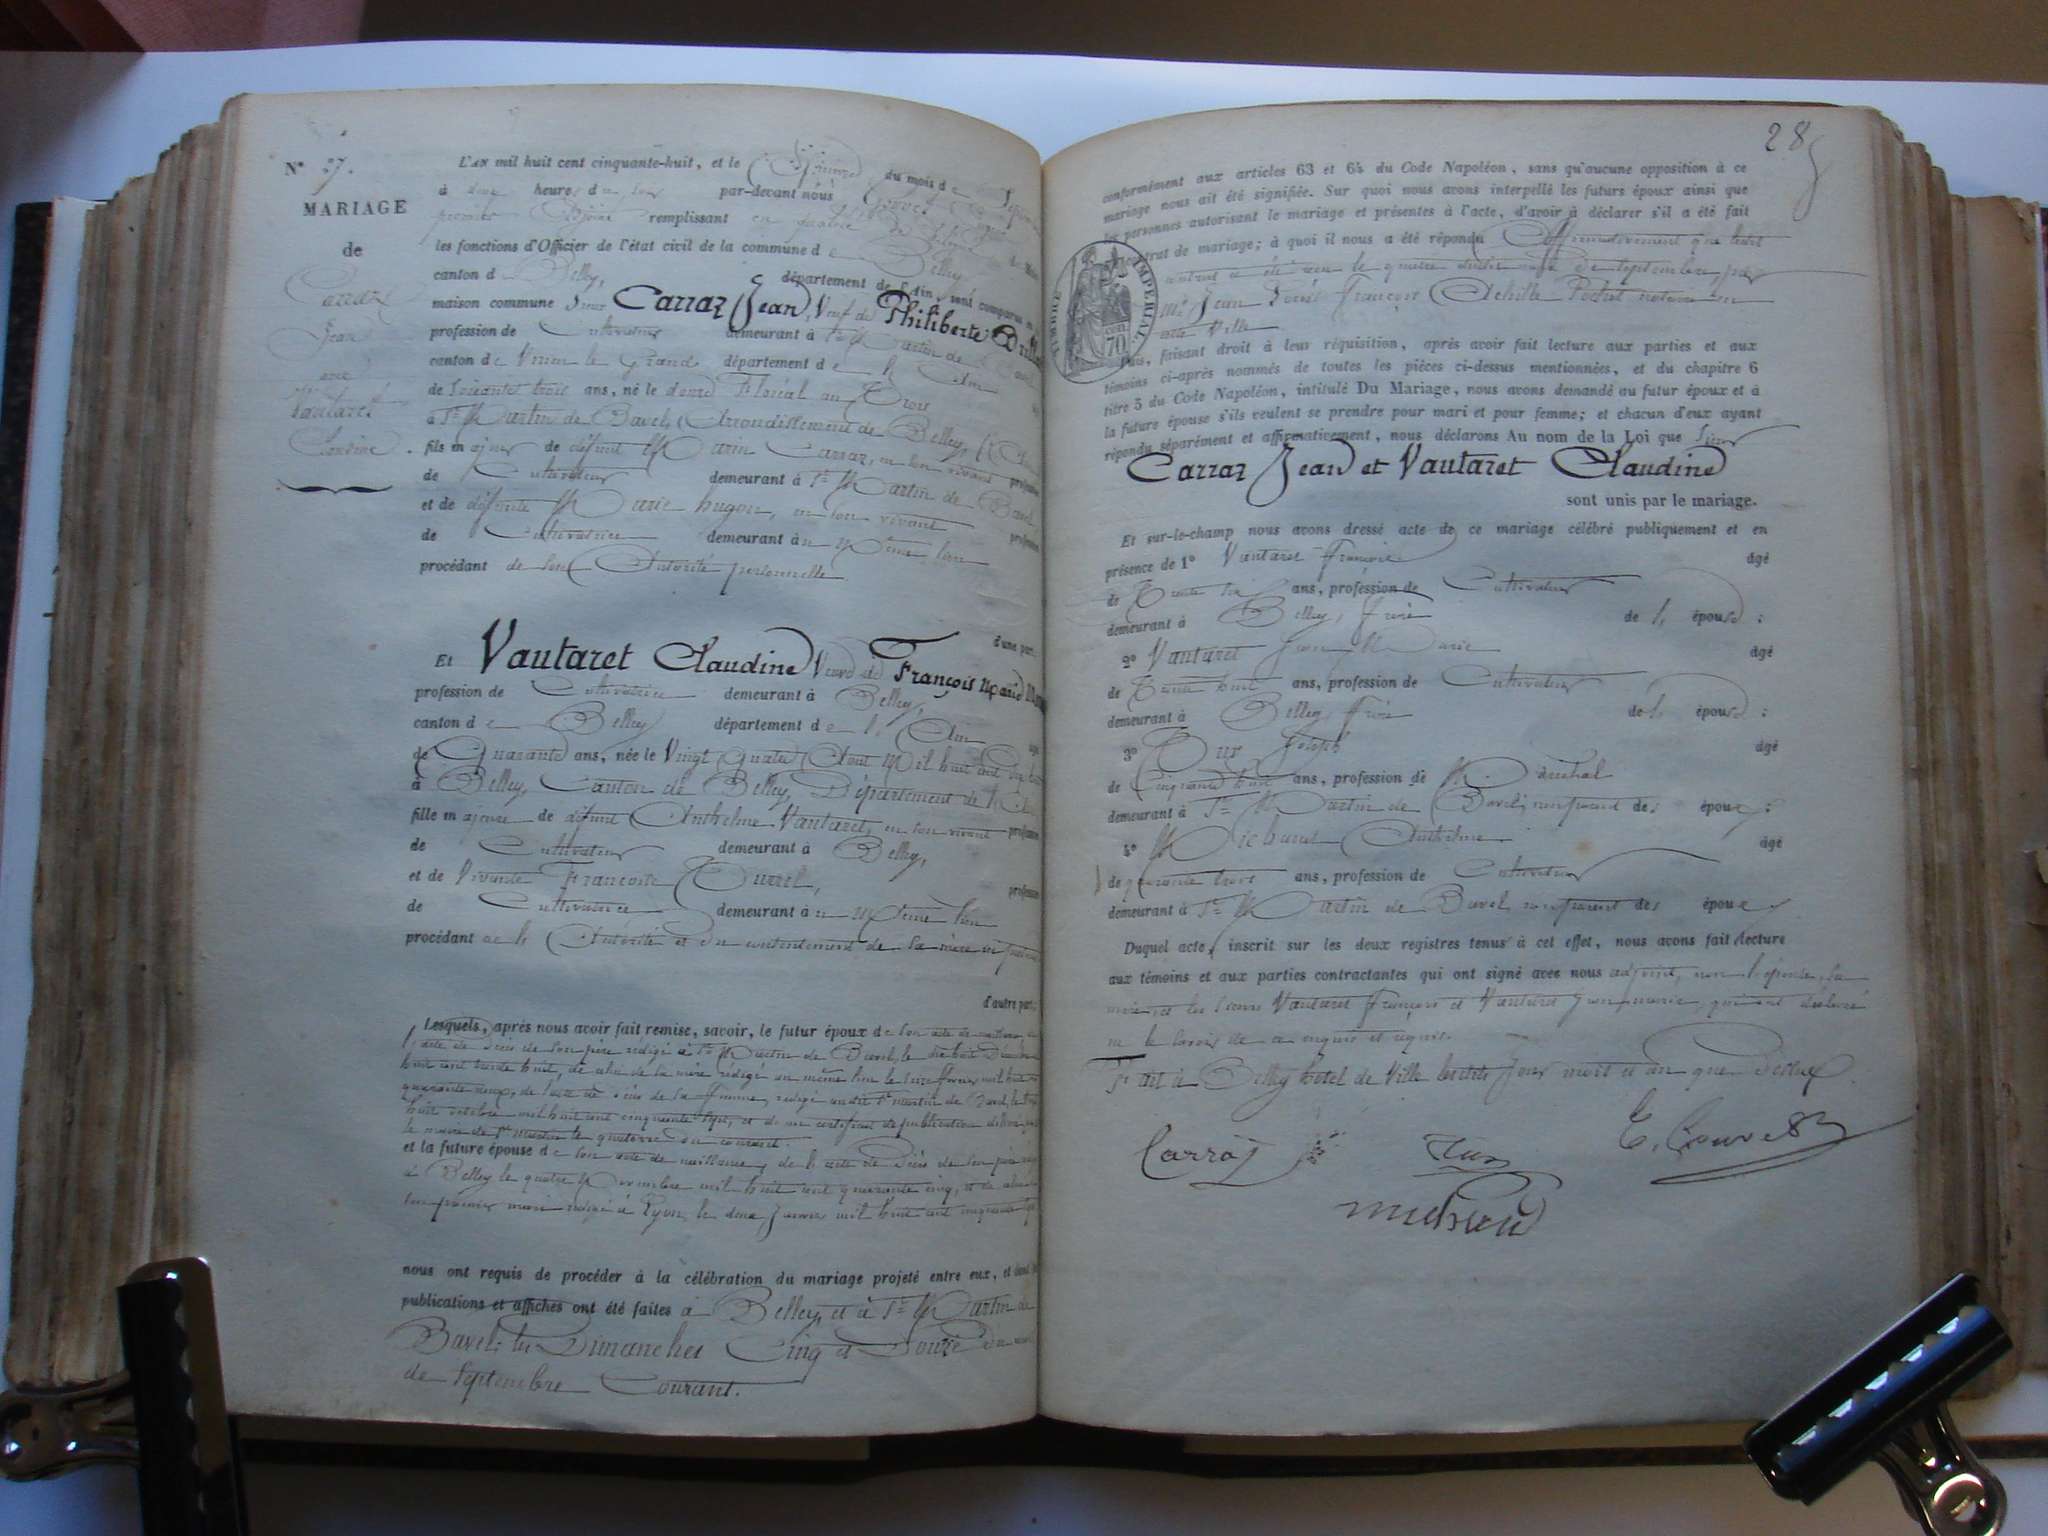 N° 27.
MARIAGE
de
Carraz
Jean
avec
Vautaret
Claudine.
L'AN mil huit cent cinquante-huit, et le Quinze du mois de
à heures du soir par-devant nous
premier Adjoint remplissant en qualité de
les fonctions d'Officier de l'état civil de la commune de Belley
canton d Belley, département de l'Ain, sont comparus en
maison commune Sieur Carraz Jean, Veuf de Philiberte
profession de Cultivateur demeurant à St Martin de Bavel
canton de Virieu le Grand département de l'Ain
de Soixante trois ans, né le douze Floréal an Trois
à St Martin de Bavel, Arrondissement de Belley, (Ain
fils majeur de défunt Marin Carraz, en son vivant profession
de Cultivateur demeurant à St Martin de Bavel,
et de défunte Marie hugon, en son vivant profession
de Cultivatrice demeurant au Même lieu
procédant de son Autorité personnelle
d'une part.
Et Vautaret Claudine Veuve de François Marie
profession de Cultivatrice demeurant à Belley,
canton de Belley département de l'Ain âgée
de Quarante ans, née le Vingt Quatre Août Mil huit cent dix huit
à Belley, Canton de Belley, Département de l'Ain
fille majeure de défunt Anthelme Vautaret, en son vivant profession
de Cultivateur demeurant à Belley,
et de Vivante Françoise profession
de Cultivatrice demeurant au Même lieu
procédant de l'Autorité et du consentement de sa mère ici présente
d'autre part.
Lesquels, après nous avoir fait remise, savoir, le futur époux de son acte de naissance, de
l'acte de décès de son père rédigé à St Martin de Bavel, le dix huit Décembre
huit cent trente huit, de celui de sa mère rédigé au même lieu le onze février mil huit cent
quarante neuf, de l'acte de décès de sa femme, rédigé au dit St Martin de Bavel, le
huit octobre mil huit cent cinquante sept, et de un certificat de publication délivré par
le maire de St Martin le quatorze du courant.
et la future épouse de son acte de naissance, de l'acte de décès de son père
à Belley le quatre Novembre mil huit cent quarante cinq, et de celui de
son premier mari rédigé à Lyon, le douze Janvier mil huit cent cinquante
nous ont requis de procéder à la célébration du mariage projeté entre eux, et dont les
publications et affiches ont été faites à Belley, et à St Martin de
Bavel, les Dimanches Cinq et Douze du mois
de Septembre Courant.
28
conformément aux articles 63 et 64 du Code Napoléon, sans qu'aucune opposition à ce
mariage nous ait été signifiée. Sur quoi nous avons interpellé les futurs époux ainsi que
les personnes autorisant le mariage et présentes à l'acte, d'avoir à déclarer s'il a été fait
contrat de mariage; à quoi il nous a été répondu Affirmativement que ledit
contrat a été reçu le quatre du mois de Septembre, par
Me Jean Louis François Achille Pochet notaire en
cette Ville
TIMBRE IMPÉRIAL
70 cen
Puis, faisant droit à leur réquisition, après avoir fait lecture aux parties et aux
témoins ci-après nommés de toutes les pièces ci-dessus mentionnées, et du chapitre 6
titre 5 du Code Napoléon, intitulé Du Mariage, nous avons demandé au futur époux et à
la future épouse s'ils veulent se prendre pour mari et pour femme; et chacun d'eux ayant
répondu séparément et affirmativement, nous déclarons Au nom de la Loi que Sieur
Carraz Jean et Vautaret Claudine
sont unis par le mariage.
Et sur-le-champ nous avons dressé acte de ce mariage célébré publiquement et en
présence de 1° Vautaret François âgé
de Trente six ans, profession de Cultivateur
demeurant à Belley, frère de l' épouse;
2° Vautaret Jean Marie âgé
de Trente huit ans, profession de Cultivateur
demeurant à Belley frère de l' épouse;
3° Joseph âgé
de Cinquante huit ans, profession de Maréchal
demeurant à St Martin de Bavel, non parent des époux;
4° Michaud Anthelme âgé
de quarante trois ans, profession de Cultivateur
demeurant à St Martin de Bavel non parent des époux
Duquel acte, inscrit sur les deux registres tenus à cet effet, nous avons fait lecture
aux témoins et aux parties contractantes qui ont signé avec nous adjoint, non l'épouse, sa
mère et les sieurs Vautaret François et Vautaret Jean marie, qui ont déclaré
ne le savoir, de ce enquis et requis.
Fait à Belley hôtel de Ville lesdits Jour mois et an que dessus.
Carraz
Michaud